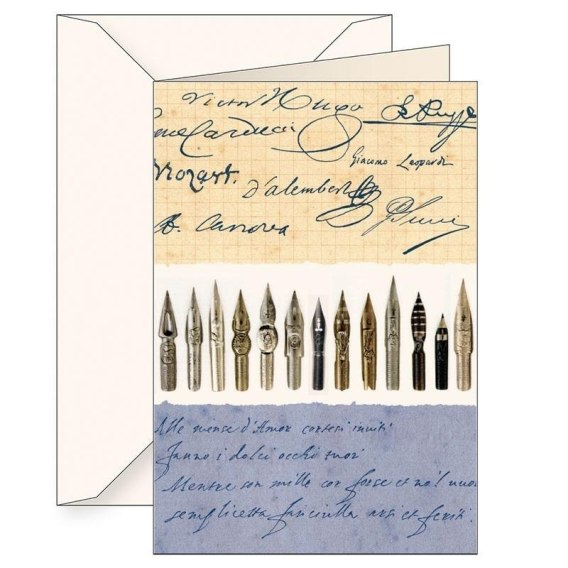 Victor Hugo
Carducci
Giacomo Leopardi
Mozart.
d'alembert
A. Canova
Alle mense d'Amor cortesi inviti
Fanno i dolci occhi tuoi
Mentre son mille cor forse
semplicetta fanciulla arsi et feriti.